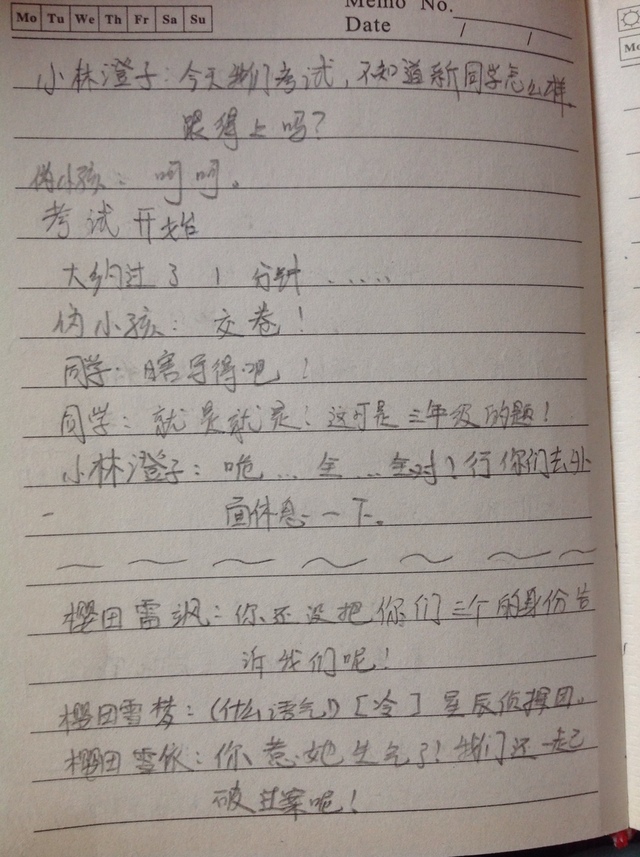 Mo Tu We Th Fr Sa Su
Memo No.
Date / /
小林澄子:今天我们考试,不知道新同学怎么样
跟得上吗?
伪小孩:呵呵。
考试开始
大约过了1分钟......
伪小孩:交卷!
同学:瞎写得吧!
同学:就是就是!这可是三年级的题!
小林澄子:咦...全...全对?行你们去外
面休息一下。
樱田雪飒:你还没把你们三个的身份告
诉我们呢!
樱田雪梦:(什么语气)[冷]星辰侦探团。
樱田雪依:你惹她生气了!我们还一起
破过案呢!
Mo